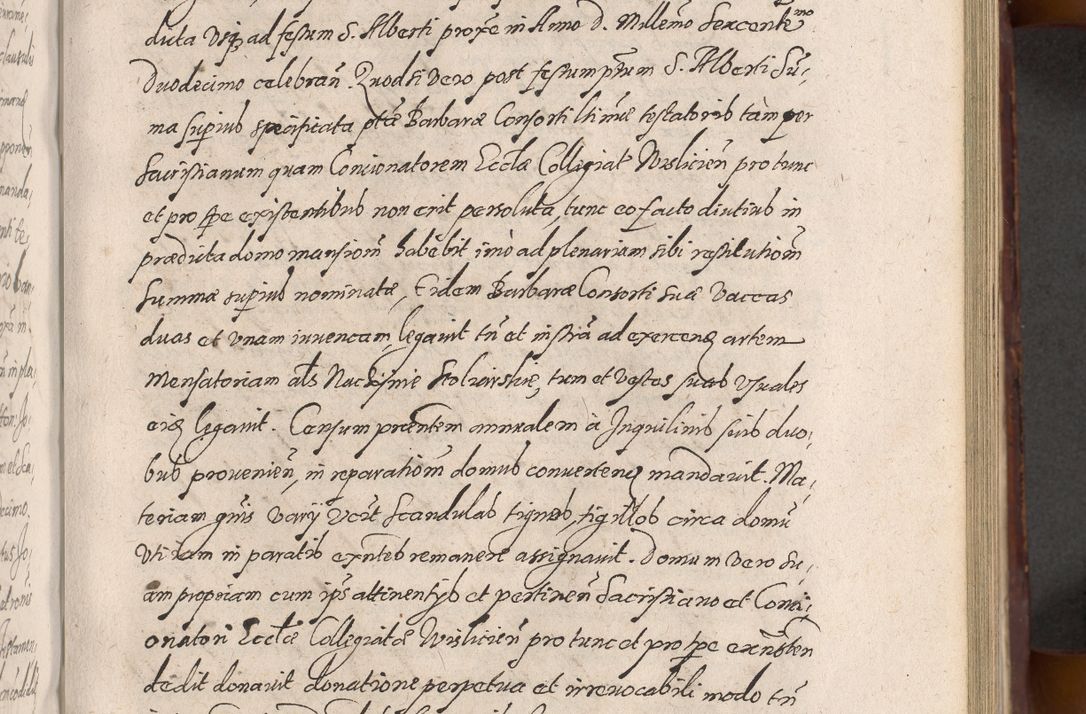 ducta Usq ad festum S. Alberti proxe in Anno D. Millemo Sexcente mo
Duodecimo celebran̄. Quodsi vero post festum ptum S. Alberti Su,
ma supius specificata ptæ Barbaræ Consorti ltimæ testatoris tam per
Sacristianum quam Concionatorem Ecclæ Collegiat Wislicien̄ pro tunc
et pro tpe existentibus non erit persoluta, tunc eo facto diutius in
prædicta domo mansiom̄ habebit imò ad plenariam sibi restitutiom̄
summæ supius nominatæ, Eidem Barbaræ Consorti suæ Vaccas
duas et vnam iuvencam, legavit tn̄ et instra ad exercen artem
Mensatoriam als Naczynie Stolarskie, tum et Vestes suas Vsuales
eid legavit. Censum præntem annualem à Inquilinis suis duo,
bus provenien̄, in reparatiom̄ domus converten mandavit. Ma,
teriam gnis varij Vcit Scandulas tignos, tigillos circa domū
Vti iam in paratis exntes remanere assignavit. Domum vero su,
am propriam cum ips attinentijs et pertinen̄ Sacristiano et Conci,
onatori Ecclæ Collegiatæ Wislicien̄ pro tunc et pro tpe exnsten
dedit donavit donatione perpetua et irrevocabili modo tn̄